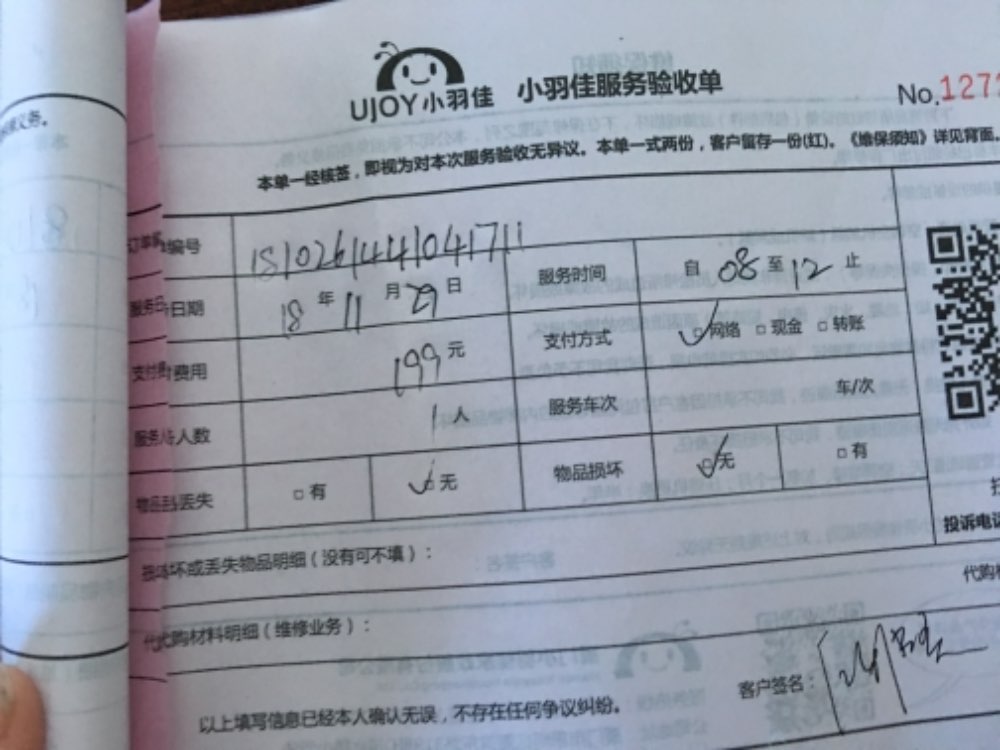 UJOY小羽佳 小羽佳服务验收单
No.1272
本单一经核签，即视为对本次服务验收无异议。本单一式两份，客户留存一份(红)。《维保须知》详见背面。
编号 181026144104171 1
服务日期 18 年 11 月 29 日 服务时间 自 08 至 12 止
支付费用 199 元 支付方式 网络 现金 转账
服务人数 1 人 服务车次 车/次
物品丢失 有 无 物品损坏 无 有
损坏或丢失物品明细（没有可不填）：
投诉电
代购材料明细（维修业务）：
代购
以上填写信息已经本人确认无误，不存在任何争议纠纷。
客户签名：